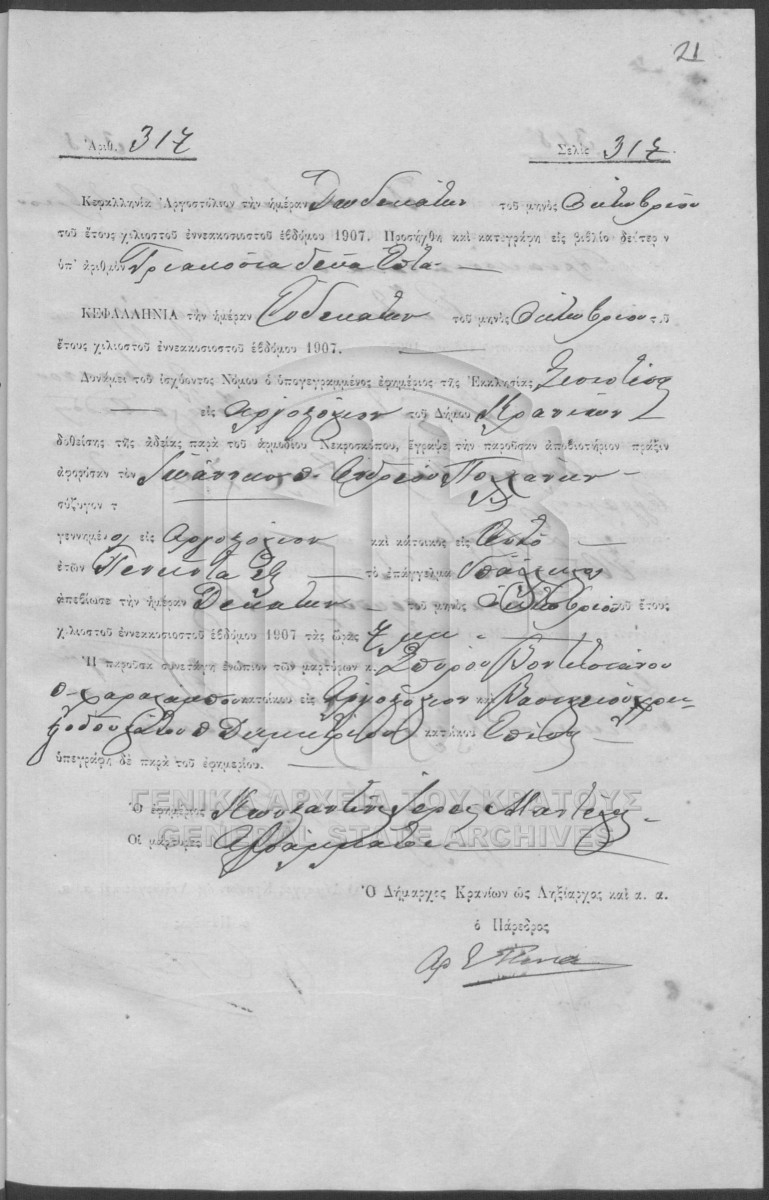 21
Ἀριθ. 317 Σελὶς 317
Κεφαλληνία Ἀργοστόλιον τὴν ἡμέραν Δωδεκάτην τοῦ μηνὸς Ὀκτωβρίου
τοῦ ἔτους χιλιοστοῦ ἐννεακοσιοστοῦ ἑβδόμου 1907. Προσήχθη καὶ κατεγράφη εἰς βιβλίο δεύτερ ν
ὑπ' ἀριθμὸν Τριακόσια δέκα ἑπτὰ
ΚΕΦΑΛΛΗΝΙΑ τὴν ἡμέραν Ἑνδεκάτην τοῦ μηνὸς Ὀκτωβρίου τοῦ
ἔτους χιλιοστοῦ ἐννεακοσιοστοῦ ἑβδόμου 1907.
Δυνάμει τοῦ ἰσχύοντος Νόμου ὁ ὑπογεγραμμένος ἐφημέριος τῆς Ἐκκλησίας
εἰς Ἀργοστόλιον τοῦ Δήμου Κρανίων
δοθείσης τῆς ἀδείας παρὰ τοῦ ἁρμοδίου Νεκροσκόπου, ἔγραψε τὴν παροῦσαν ἀποβιωτήριον πρᾶξιν
ἀφορῶσαν τὸν Ἰωάννην π. Ἀνδρέου
σύζυγον τ
γεννημένο εἰς Ἀργοστόλιον καὶ κάτοικος εἰς Αὐτὸ
ἐτῶν Πενῆντα ἓξ τὸ ἐπάγγελμα
ἀπεβίωσε τὴν ἡμέραν Δεκάτην τοῦ μηνὸς Ὀκτωβρίου τοῦ ἔτους
χιλιοστοῦ ἐννεακοσιοστοῦ ἑβδόμου 1907 τὰς ὥρας 7 μμ
Ἡ παροῦσα συνετάγη ἐνώπιον τῶν μαρτύρων κ. Σπύρου
π. Χαραλάμπου κατοίκου εἰς Ἀργοστόλιον καὶ Βασιλείου
π Δημητρίου κατοίκου Ἐπίσης
ὑπεγράφη δὲ παρὰ τοῦ ἐφημερίου.
ΓΕΝΙΚΑ ΑΡΧΕΙΑ ΤΟΥ ΚΡΑΤΟΥΣ
Ὁ ἐφημέριος Κωνσταντῖνος Ἱερεὺς
GENERAL STATE ARCHIVES
Οἱ μάρτυρες Ἀγράμματοι
Ὁ Δήμαρχος Κρανίων ὡς Ληξίαρχος καὶ α. α.
ὁ Πάρεδρος